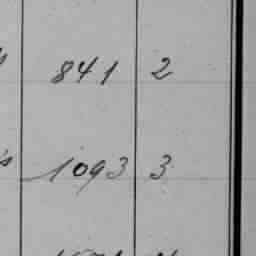 841 2
1093 3